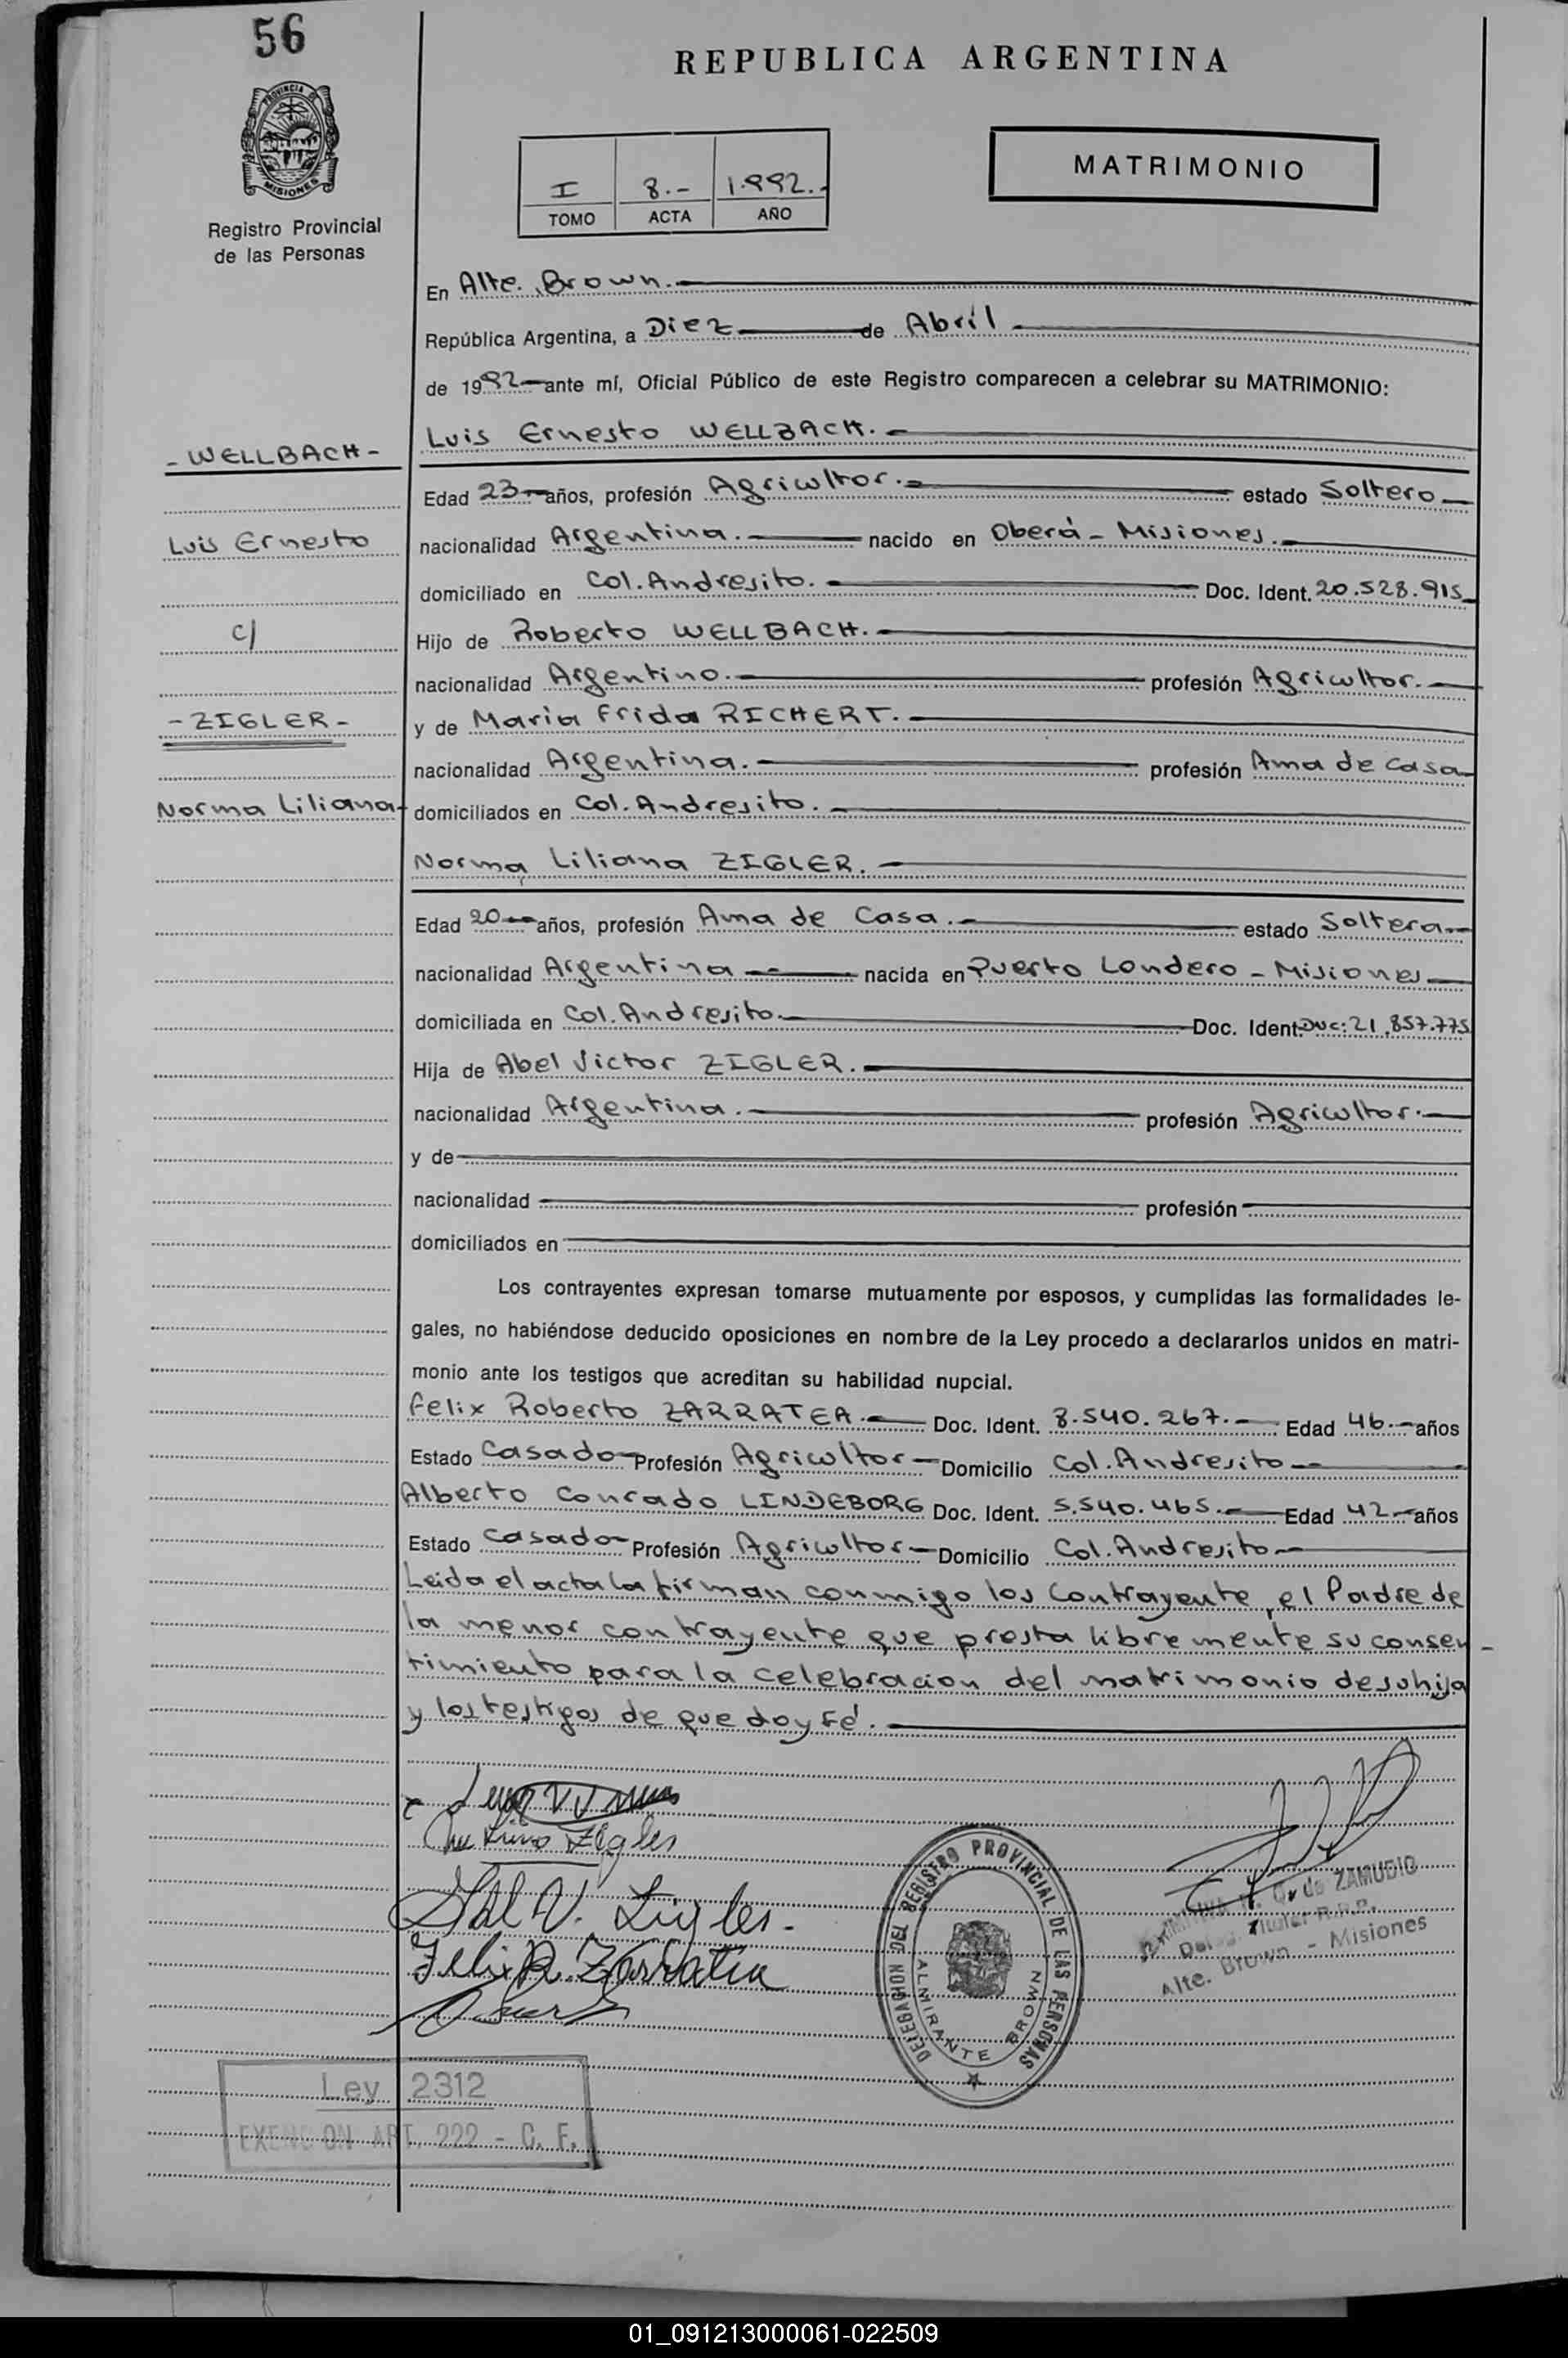 56
REPUBLICA ARGENTINA
PROVINCIA DE
MISIONES
Registro Provincial
de las Personas
I 8.- 1.992.-
TOMO ACTA AÑO
MATRIMONIO
En Alte. Brown.
República Argentina, a Diez de Abril
de 1992 ante mí, Oficial Público de este Registro comparecen a celebrar su MATRIMONIO:
- WELLBACH -
Luis Ernesto WELLBACH.
Edad 23 años, profesión Agricultor. estado Soltero
Luis Ernesto
nacionalidad Argentina. nacido en Oberá - Misiones.
domiciliado en Col. Andresito. Doc. Ident. 20.528.915
c/
Hijo de Roberto WELLBACH.
nacionalidad Argentino. profesión Agricultor.
- ZIGLER -
y de Maria Frida RICHERT.
nacionalidad Argentina. profesión Ama de Casa
Norma Liliana
domiciliados en Col. Andresito.
Norma Liliana ZIGLER.
Edad 20 años, profesión Ama de Casa. estado Soltera
nacionalidad Argentina nacida en Puerto Londero - Misiones
domiciliada en Col. Andresito. Doc. Ident. 21.857.775
Hija de Abel Victor ZIGLER.
nacionalidad Argentina. profesión Agricultor.
y de
nacionalidad profesión
domiciliados en
Los contrayentes expresan tomarse mutuamente por esposos, y cumplidas las formalidades le-
gales, no habiéndose deducido oposiciones en nombre de la Ley procedo a declararlos unidos en matri-
monio ante los testigos que acreditan su habilidad nupcial.
Felix Roberto ZARRATEA. Doc. Ident. 8.540.267. Edad 46.- años
Estado Casado Profesión Agricultor Domicilio Col. Andresito
Alberto Conrado LINDEBORG Doc. Ident. 5.540.465. Edad 42 años
Estado Casado Profesión Agricultor Domicilio Col. Andresito
Leida el acta la firman conmigo los Contrayente, el Padre de
la menor contrayente que presta libremente su consen-
timiento para la celebracion del matrimonio de su hija
y los testigos de que doy Fé.
Zigler
Abel V. Zigler.
Felix R. Zarratea
DELEGACION DEL REGISTRO PROVINCIAL DE LAS PERSONAS
ALMIRANTE BROWN
de ZAMUDIO
Titular R.P.P.
Alte. Brown - Misiones
Ley 2312
EXENCION ART. 222 - C. F.
01_091213000061-022509